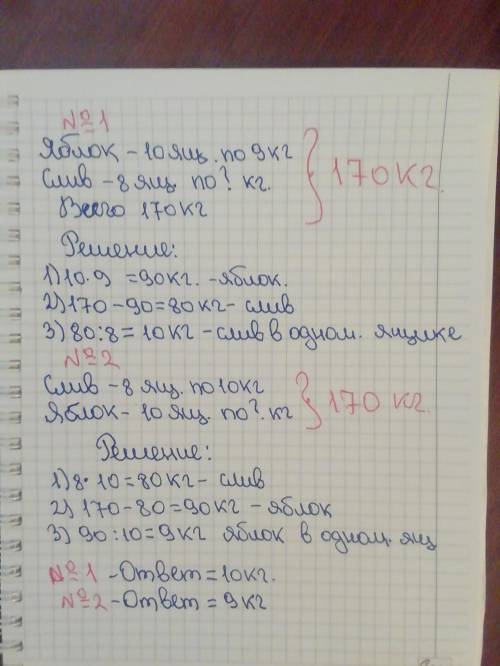 №1
Яблок – 10 ящ. по 9 кг
Слив – 8 ящ. по ? кг. } 170 кг.
Всего 170 кг
Решение:
1) 10·9 = 90 кг. – яблок.
2) 170 – 90 = 80 кг – слив
3) 80 : 8 = 10 кг – слив в одном. ящике
№2
Слив – 8 ящ. по 10 кг
Яблок – 10 ящ. по ?. кг } 170 кг.
Решение:
1) 8·10 = 80 кг – слив
2) 170 – 80 = 90 кг – яблок
3) 90 : 10 = 9 кг яблок в одном. ящ
№1 – Ответ = 10 кг.
№2 – Ответ = 9 кг